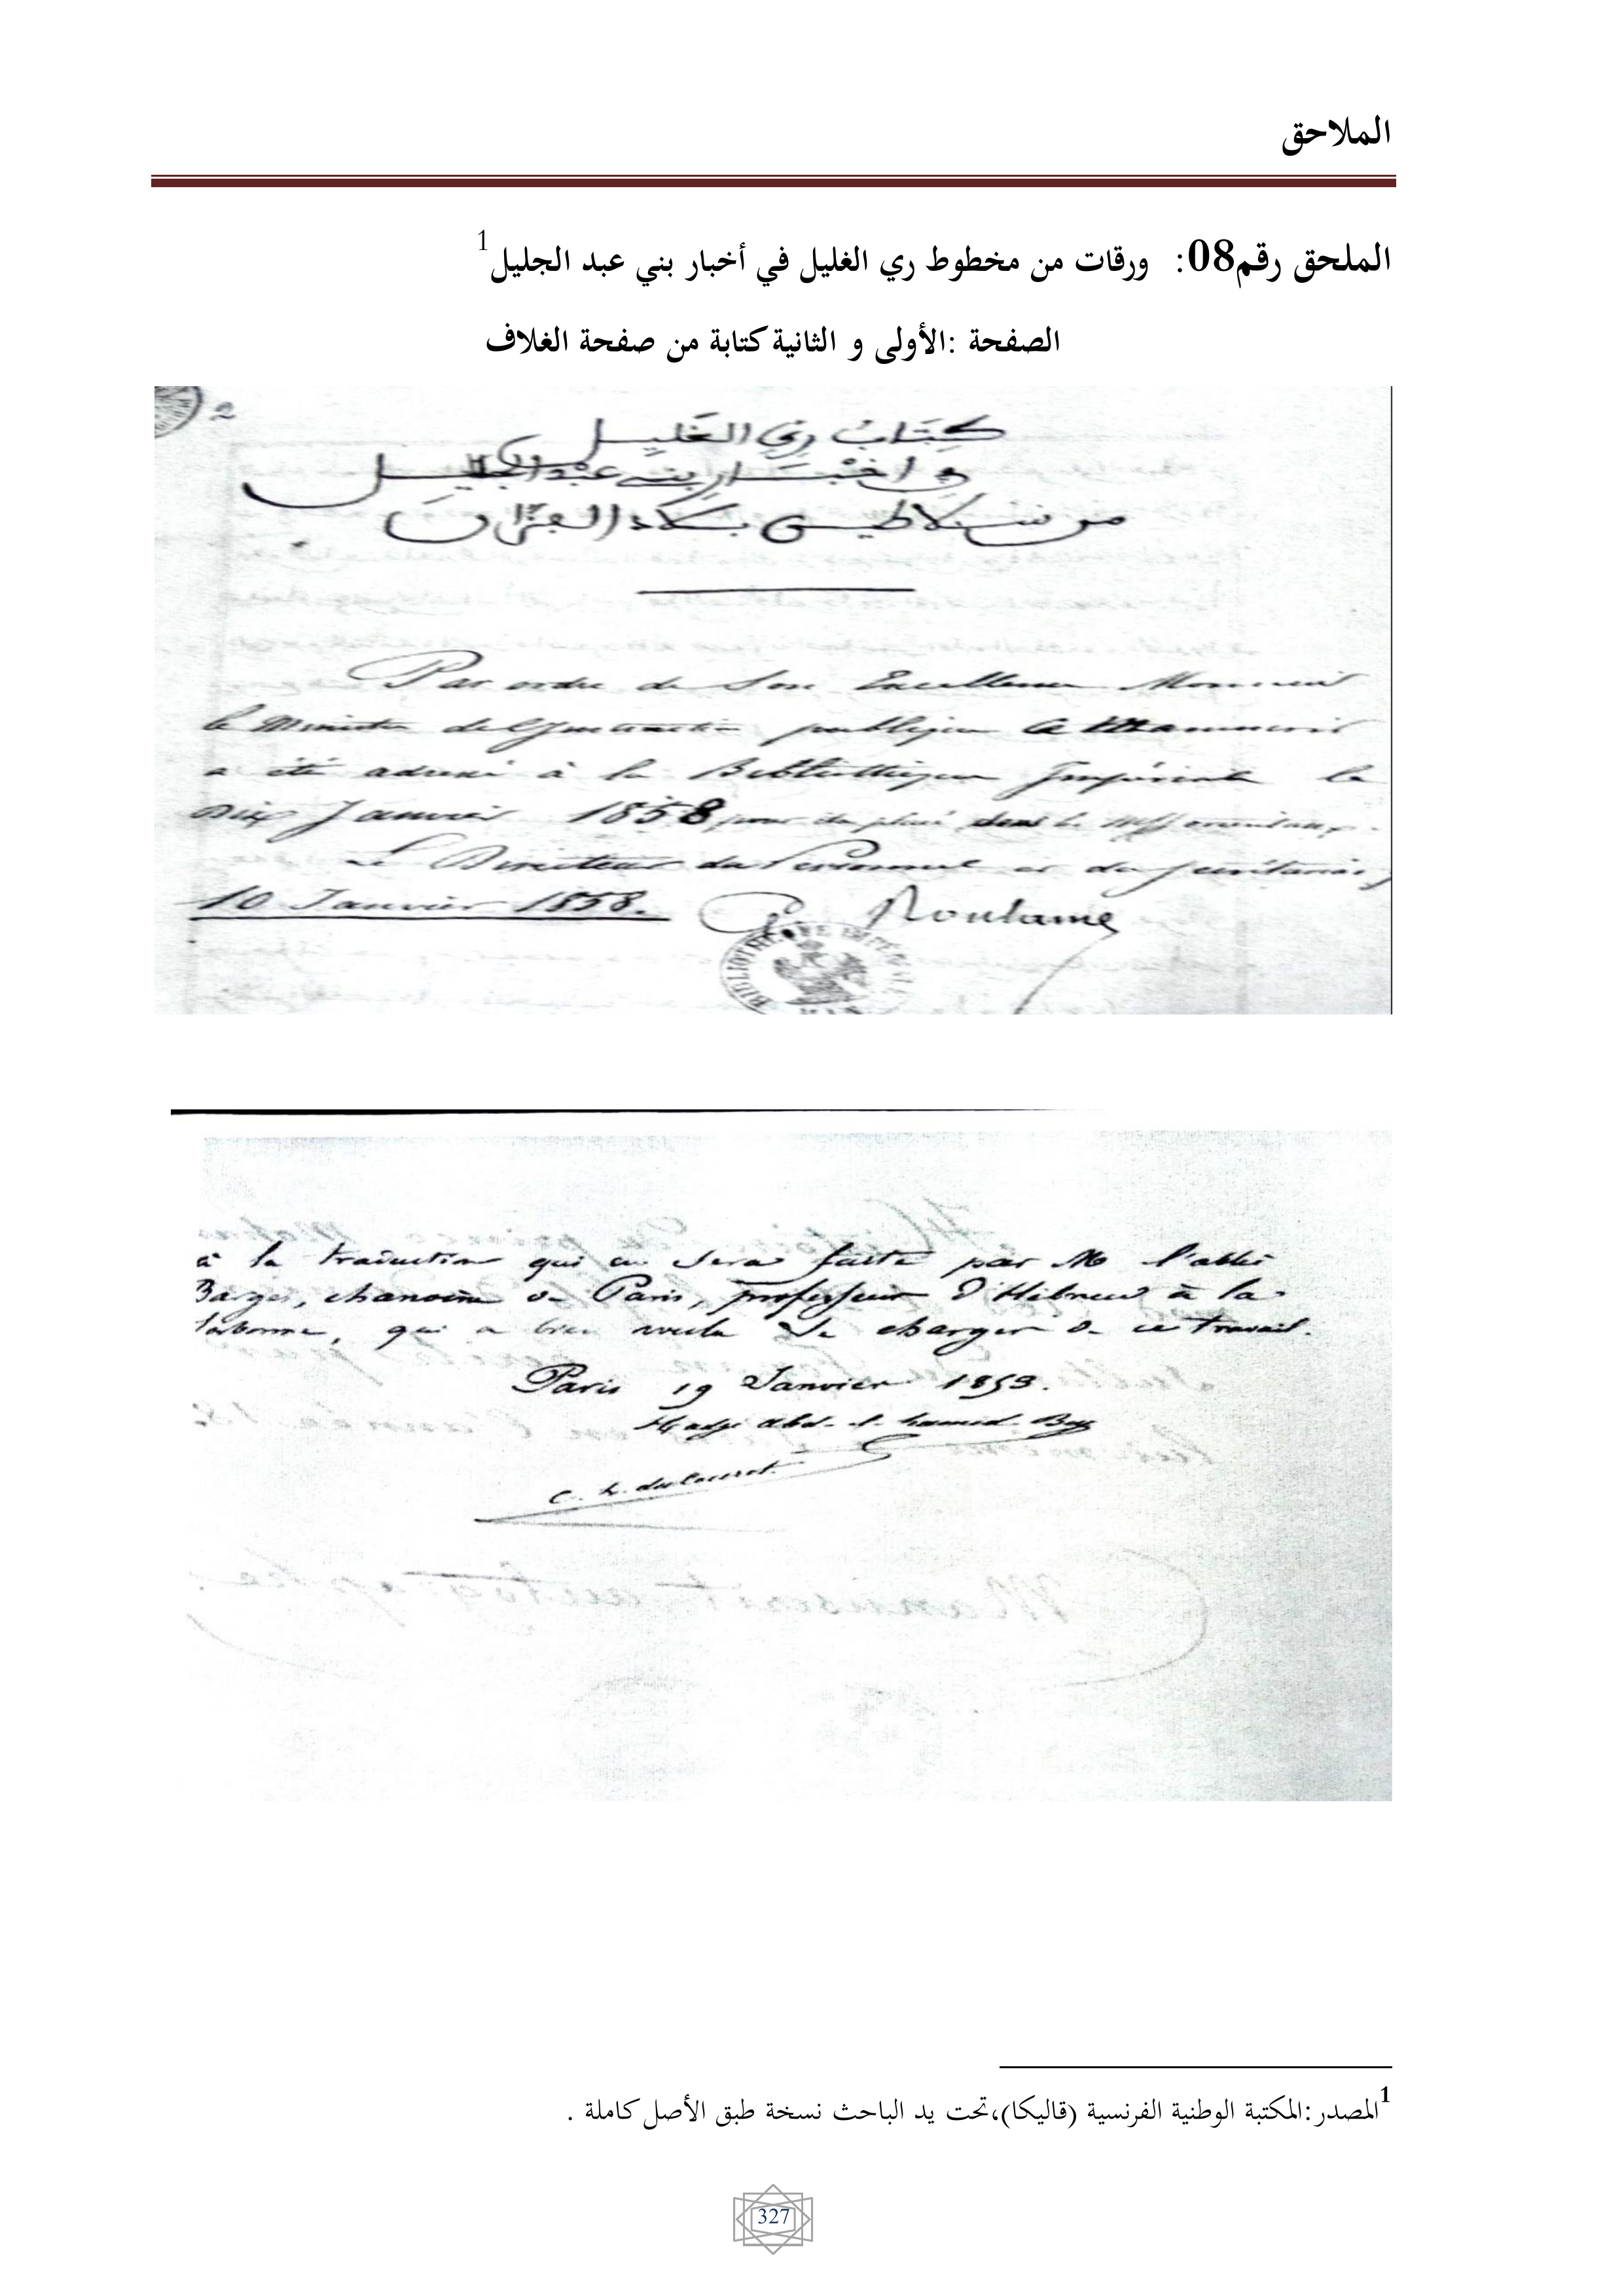 الملاحق
الملحق رقم08: ورقات من مخطوط ري الغليل في أخبار بني عبد الجليل1
الصفحة :الأولى و الثانية كتابة من صفحة الغلاف
2
كِتَاب ري الغَليل
في اخبَار بني عبد الجليل
من سلاطين بلاد الفزان
Par ordre de Son Excellence Monsieur
le Ministre de l'Instruction publique ce Manuscrit
a été adressé à la Bibliothèque Impériale le
dix Janvier 1858 pour être placé dans les mss orientaux.
Le Directeur du Personnel et du Secrétariat,
10 Janvier 1858. G. Rouland
BIBLIOTHEQUE IMPÉRIALE
à la traduction qui en sera faite par M l'abbé
Bargès, chanoine de Paris, professeur d'Hébreu à la
Sorbonne, qui a bien voulu se charger de ce travail.
Paris 19 Janvier 1853.
Hadji abd-el-hamid-Bey
C. L. du Couret
Manuscrit autographe
1المصدر:المكتبة الوطنية الفرنسية (قاليكا)،تحت يد الباحث نسخة طبق الأصل كاملة .
327